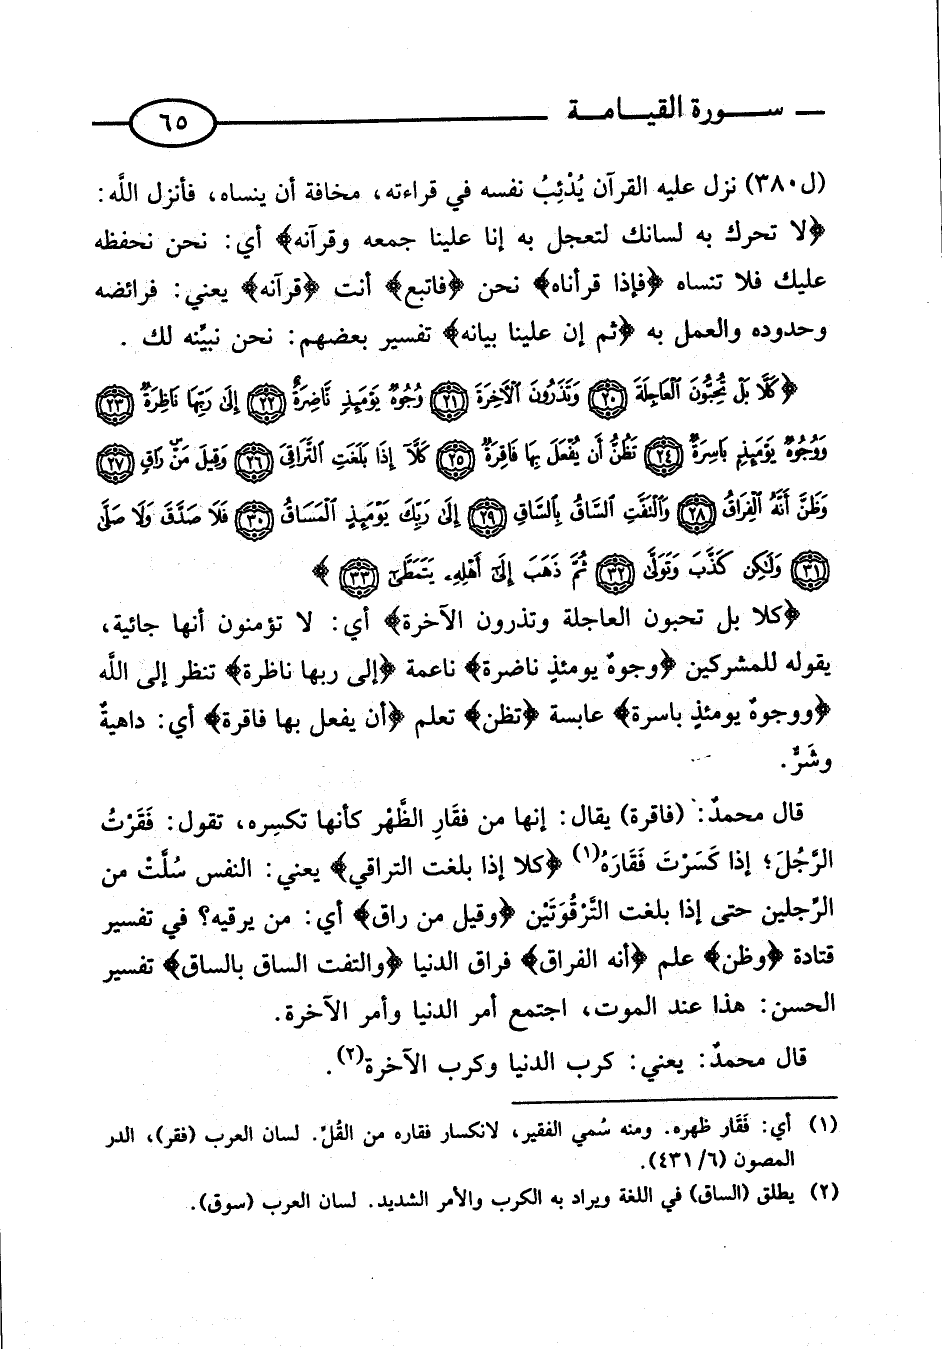 سـورة القيـامـة
٦٥
(ل٣٨٠) نزل عليه القرآن يُدْئِبُ نفسه في قراءته، مخافة أن ينساه، فأنزل اللَّه:
﴿لا تحرك به لسانك لتعجل به إنا علينا جمعه وقرآنه﴾ أي: نحن نحفظه
عليك فلا تنساه ﴿فإذا قرأناه﴾ نحن ﴿فاتبع﴾ أنت ﴿قرآنه﴾ يعني: فرائضه
وحدوده والعمل به ﴿ثم إن علينا بيانه﴾ تفسير بعضهم: نحن نبيِّنه لك .
﴿كَلَّا بَلْ تُحِبُّونَ الْعَاجِلَةَ ٢٠ وَتَذَرُونَ الْآخِرَةَ ٢١ وُجُوهٌ يَوْمَئِذٍ نَّاضِرَةٌ ٢٢ إِلَى رَبِّهَا نَاظِرَةٌ ٢٣
وَوُجُوهٌ يَوْمَئِذٍ بَاسِرَةٌ ٢٤ تَظُنُّ أَن يُفْعَلَ بِهَا فَاقِرَةٌ ٢٥ كَلَّا إِذَا بَلَغَتِ التَّرَاقِيَ ٢٦ وَقِيلَ مَنْ رَاقٍ ٢٧
وَظَنَّ أَنَّهُ الْفِرَاقُ ٢٨ وَالْتَفَّتِ السَّاقُ بِالسَّاقِ ٢٩ إِلَى رَبِّكَ يَوْمَئِذٍ الْمَسَاقُ ٣٠ فَلَا صَدَّقَ وَلَا صَلَّى
٣١ وَلَكِن كَذَّبَ وَتَوَلَّى ٣٢ ثُمَّ ذَهَبَ إِلَى أَهْلِهِ يَتَمَطَّى ٣٣﴾
﴿كلا بل تحبون العاجلة وتذرون الآخرة﴾ أي: لا تؤمنون أنها جائية،
يقوله للمشركين ﴿وجوهٌ يومئذٍ ناضرة﴾ ناعمة ﴿إلى ربها ناظرة﴾ تنظر إلى اللَّه
﴿ووجوهٌ يومئذٍ باسرة﴾ عابسة ﴿تظن﴾ تعلم ﴿أن يفعل بها فاقرة﴾ أي: داهيةٌ
وشَرٌّ.
قال محمدٌ: (فاقرة) يقال: إنها من فقَارِ الظَّهْر كأنها تكسِره، تقول: فَقَرْتُ
الرَّجُلَ؛ إذا كَسَرْتَ فَقَارَهُ(١) ﴿كلا إذا بلغت التراقي﴾ يعني: النفس سُلَّتْ من
الرِّجلين حتى إذا بلغت التَّرْقُوَتَيْن ﴿وقيل من راق﴾ أي: من يرقيه؟ في تفسير
قتادة ﴿وظن﴾ علم ﴿أنه الفراق﴾ فراق الدنيا ﴿والتفت الساق بالساق﴾ تفسير
الحسن: هذا عند الموت، اجتمع أمر الدنيا وأمر الآخرة.
قال محمدٌ: يعني: كرب الدنيا وكرب الآخرة(٢).
(١) أي: فَقَار ظهره. ومنه سُمي الفقير، لانكسار فقاره من القُلِّ. لسان العرب (فقر)، الدر
المصون (٤٣١/٦).
(٢) يطلق (الساق) في اللغة ويراد به الكرب والأمر الشديد. لسان العرب (سوق).